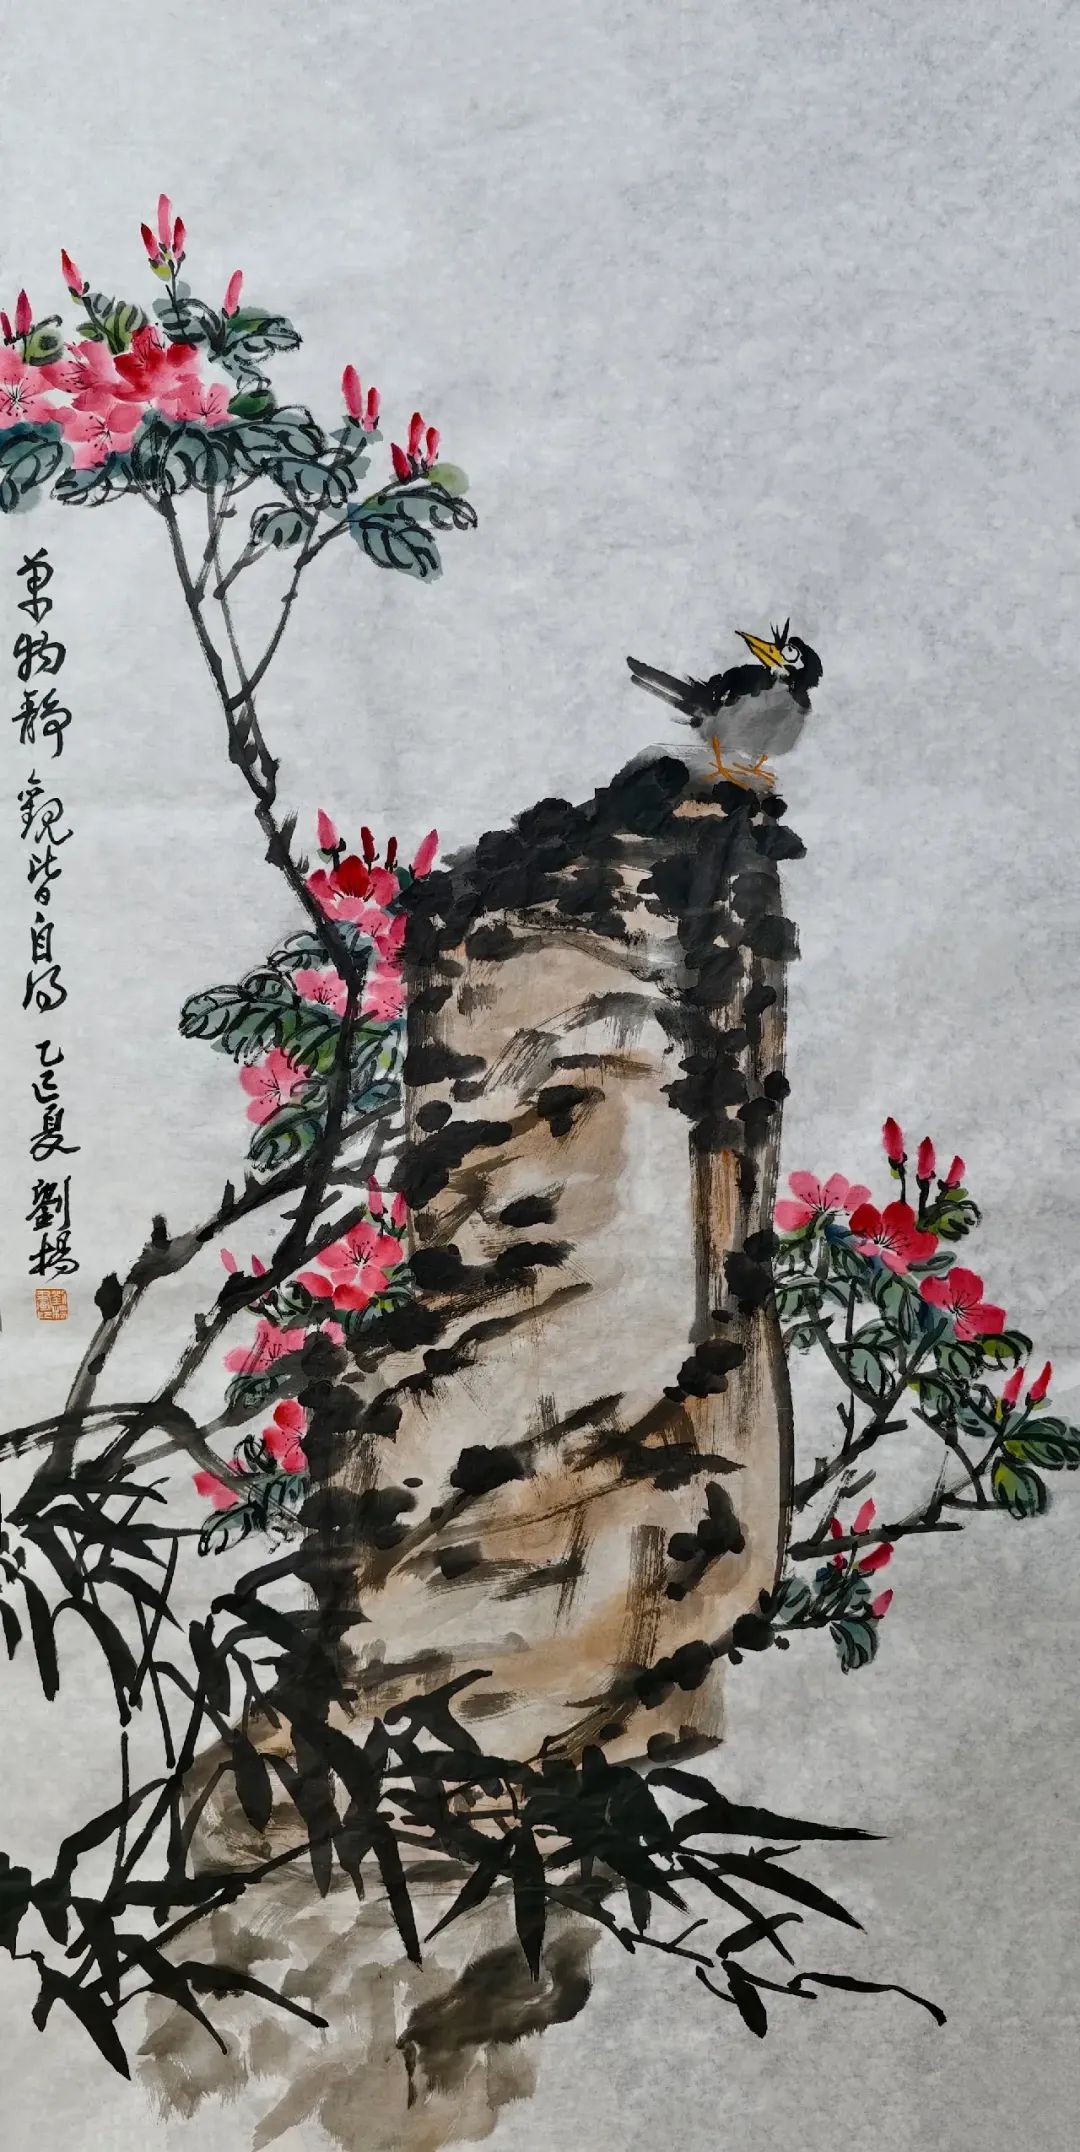 萬物靜觀皆自得 乙巳夏 劉楊